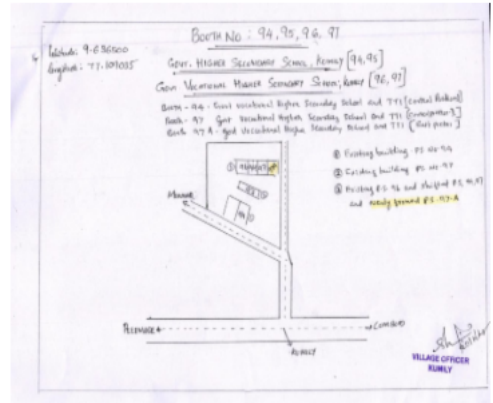 BOOTH NO : 94,95,96,97
Latitude: 9.636500
Longitude: 77.169035
Govt. Higher Secondary School, Kumily [94,95]
Govt Vocational Higher Secondary School, Kumily [96,97]
Booth - 94 - Govt Vocational Higher Secondary School and TTI [Central Portion]
Booth - 97 Govt Vocational Higher Secondary School and TTI
Booth 97 A - Govt Vocational Higher Secondary School and TTI
① Existing building PS No 94
② Existing building PS No 97
③ Existing P.S. 96 and shifted P.S.
and newly formed P.S. 97-A
MUNNAR
CUMBUM
KUMILY
VILLAGE OFFICER
KUMILY